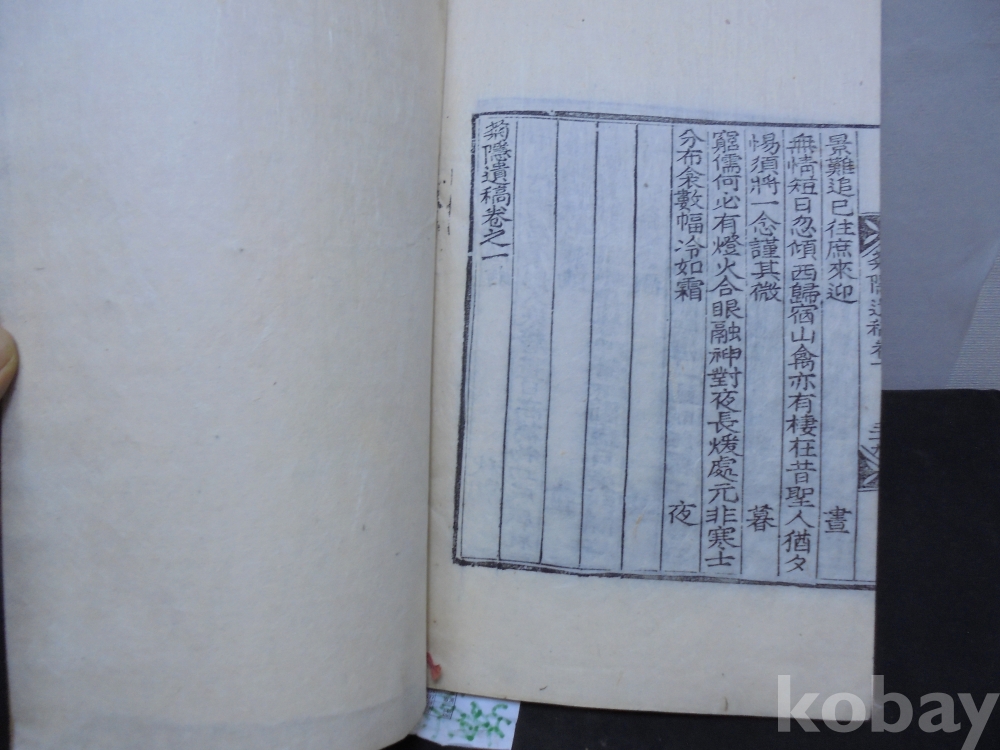 景難追已往庶來迎 晝
無情短日忽傾西歸宿山禽亦有棲在昔聖人猶夕
惕須將一念謹其微 暮
窮儒何必有燈火合眼融神對夜長煖處元非寒士
分布衾數幅冷如霜 夜
菊隱遺稿卷之一
kobay